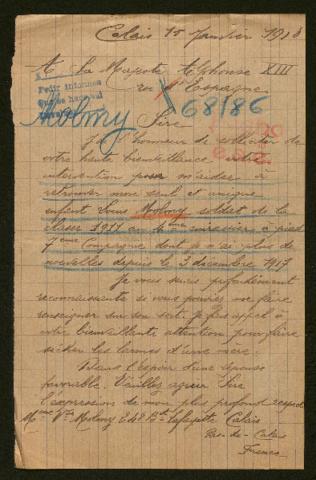 Calais 15 Janvier 1918
A Sa Majesté Alphonse XIII
roi d'Espagne
Pedir informes
68186
Molmy
Sire
J'ai l'honneur de solliciter de
votre haute bienveillance votre
intervention pour m'aider à
retrouver mon seul et unique
enfant Louis Molmy soldat de la
classe 1911 au 4ème cuirassier à pied
7eme Compagnie dont je n'ai plus de
nouvelles depuis le 3 décembre 1917
Je vous serais profondément
reconnaissante si vous pouviez me faire
renseigner sur son sort. Je fais appel à
votre bienveillante attention pour faire
sécher les larmes d'une mère.
Dans l'espoir d'une réponse
favorable. Veuillez agréer Sire
l'expression de mon plus profond respect
Mme Vve Molmy 248 Bd Lafayette Calais
Pas-de-Calais
France